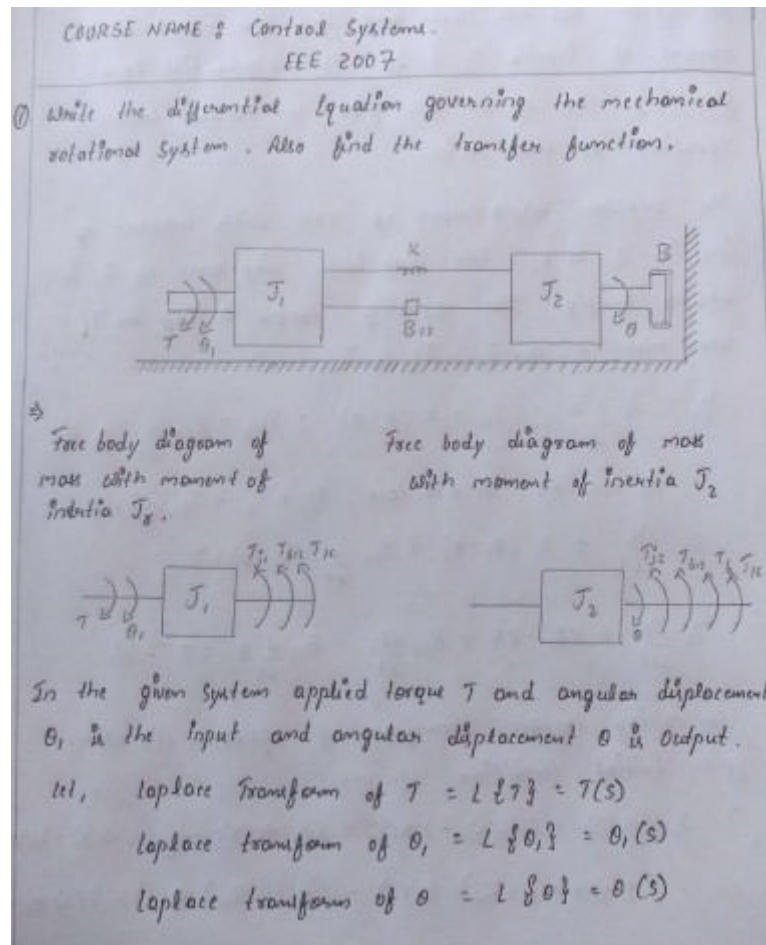 COURSE NAME : Control Systems.
EEE 2007
① Write the differential Equation governing the mechanical
rotational System. Also find the transfer function.
K
J₁
J₂
B
T
θ₁
B₁₂
θ
⇒
Free body diagram of
mass with moment of
inertia J₁.
Free body diagram of mass
with moment of inertia J₂
Tj₁ Tb₁₂ Tk
T
θ₁
J₁
Tj₂ Tb₁₂ Tb Tk
J₂
θ
In the given system applied torque T and angular displacement
θ₁ is the input and angular displacement θ is output.
let, laplace Transform of T = L {T} = T(S)
laplace transform of θ₁ = L {θ₁} = θ₁(S)
laplace transform of θ = L {θ} = θ(S)